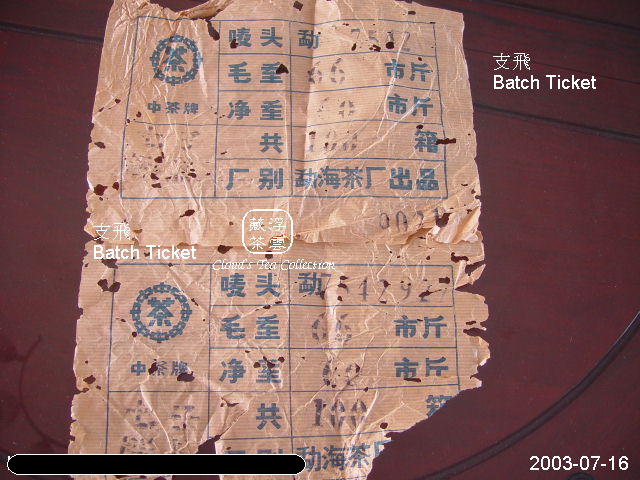 唛头 勐 7542
支飛
Batch Ticket
茶
毛重 66 市斤
中茶牌
净重 60 市斤
共 100 箱
厂别 勐海茶厂出品
支飛
Batch Ticket
藏浮
茶雲
Cloud's Tea Collection
唛头 勐
茶
毛重 66 市斤
中茶牌
净重 60 市斤
共 100 箱
勐海茶厂
2003-07-16